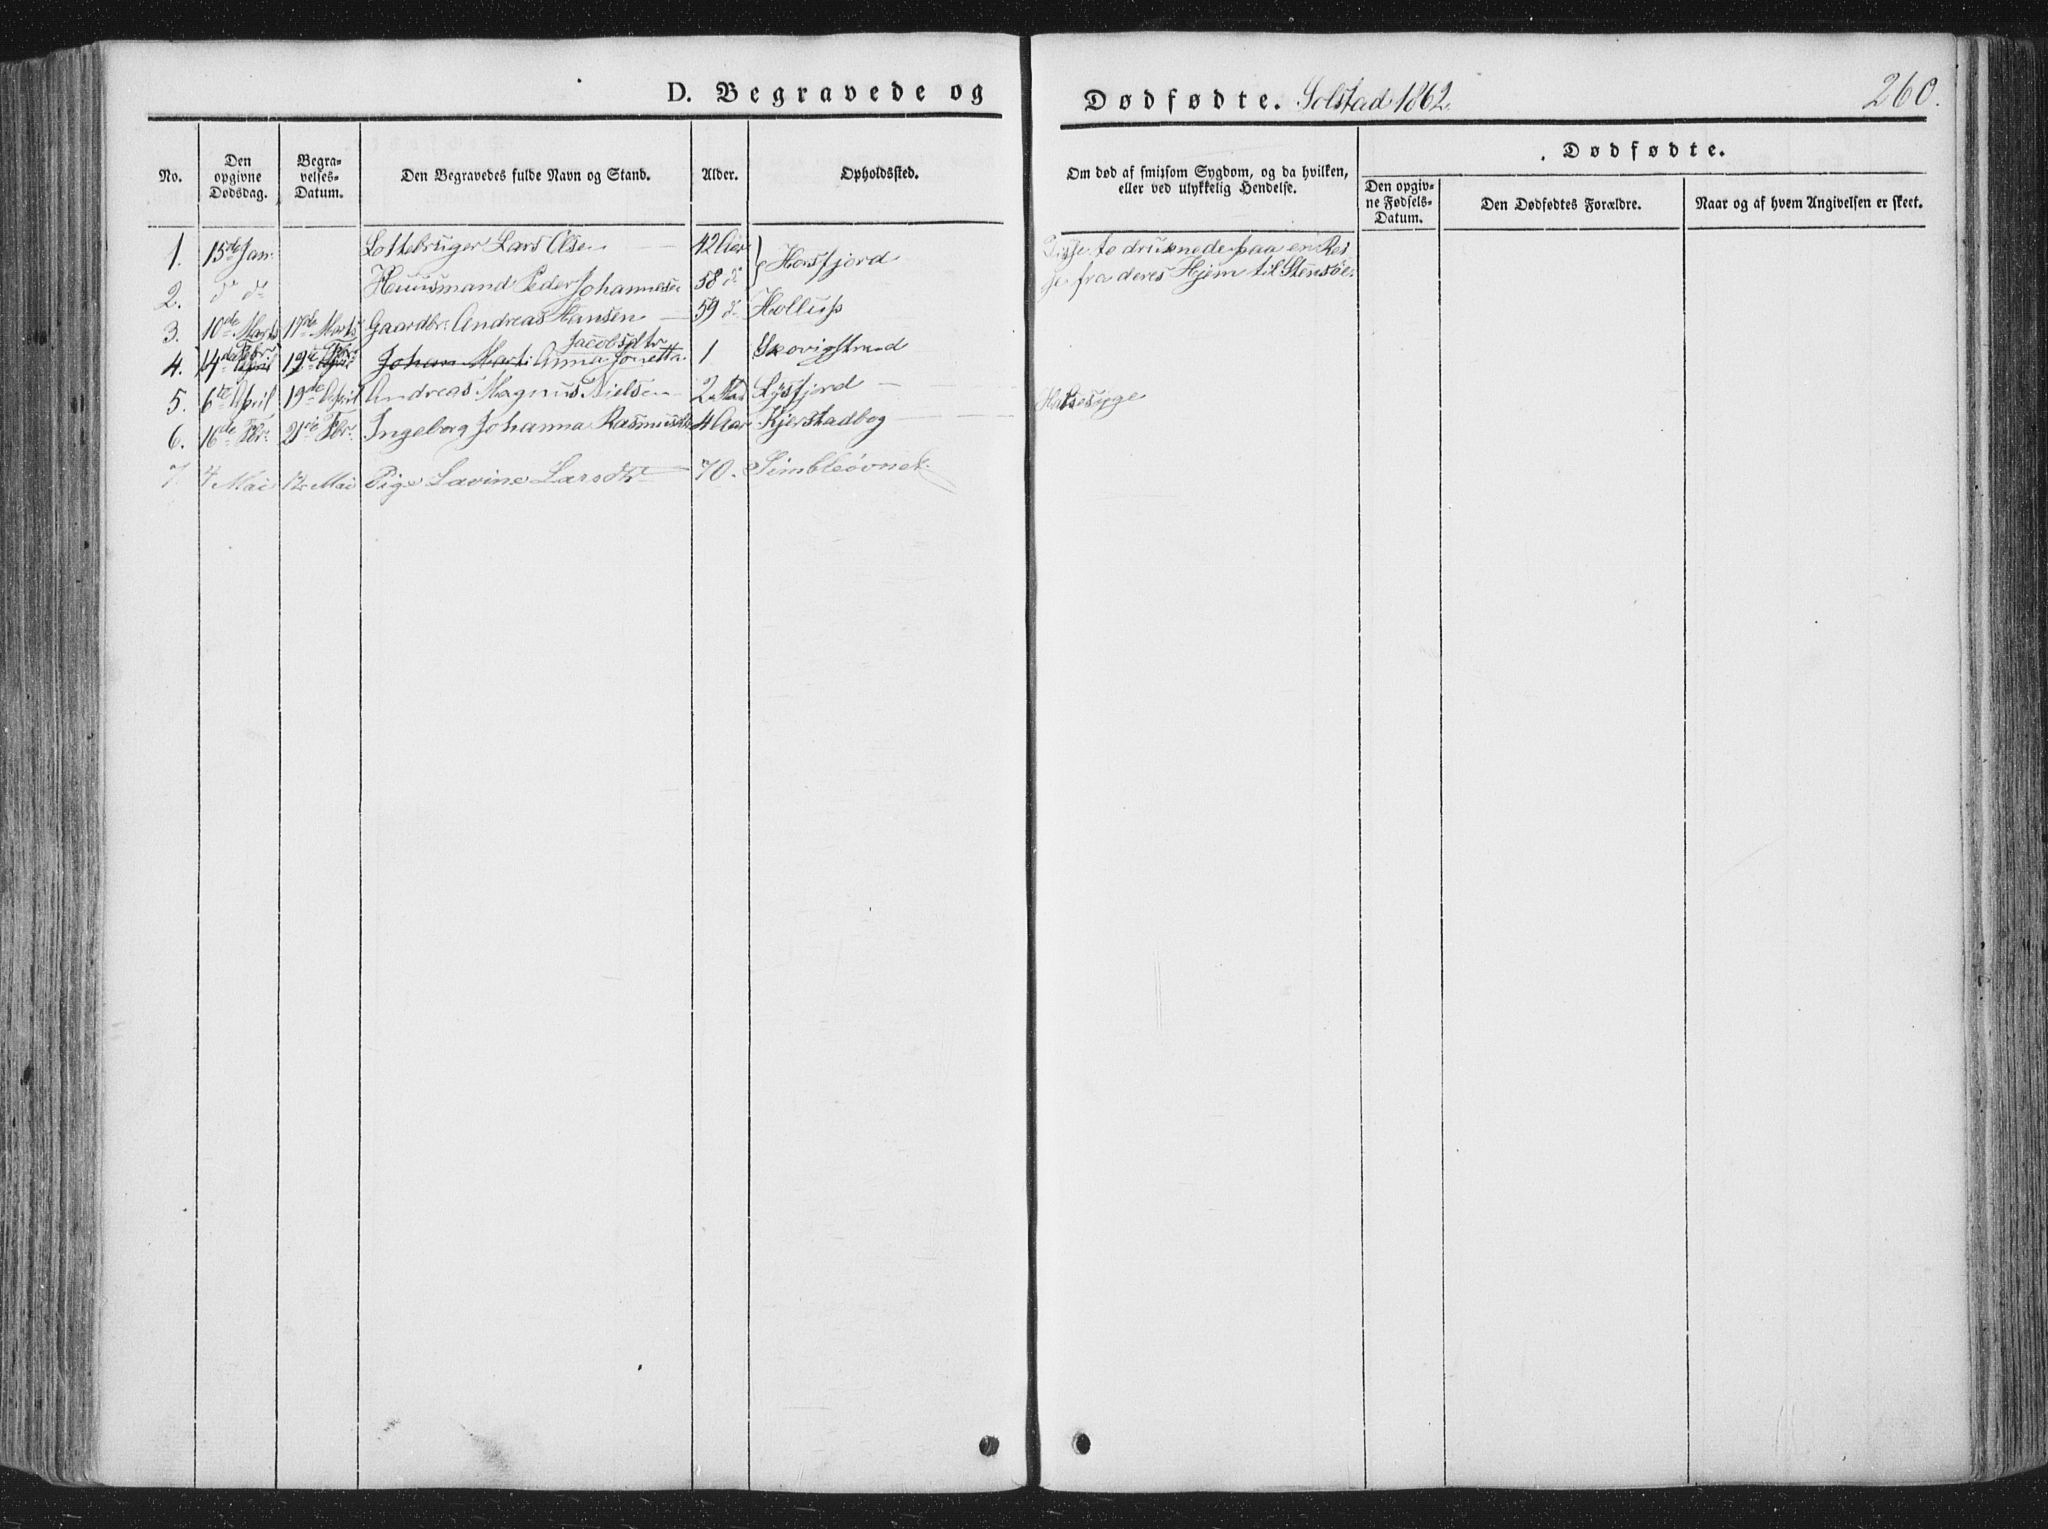 D. Begravede og Dødfødte. Solstad 1862. 260.
No. Den opgivne Dødsdag. Begravelses-Datum. Den Begravedes fulde Navn og Stand. Alder. Opholdssted. Om død af smitsom Sygdom, og da hvilken, eller ved ulykkelig Hendelse.
Dødfødte.
Den opgivne Fødsels-Datum. Den Dødfødtes Forældre. Naar og af hvem Angivelsen er skeet.
1. 15de Jan. Lottebruger Lars Olsen 42 Aar } Horsfjord Disse to druknede paa en Rei-
2. do do Huusmand Peder Johannesen 58 do se fra deres Hjem til Stensøe.
3. 10de Marts 17de Marts Gaardbr. Andreas Hansen 59 do Hollup
Jacobsdtr
4. 14de Febr. 19de Febr. Johan Marti Anna Jonetta 1 Skovigstrand
5. 6te April 19de April Andreas Magnus Nielsen 2 Lysfjord
6. 16de Fbr. 21de Fbr. Ingeborg Johanna Rasmusdtr 4 Aar Kjerstadbog Halsesyge
7 4 Mai 12 Mai Pige Lavine Larsdtr 70.